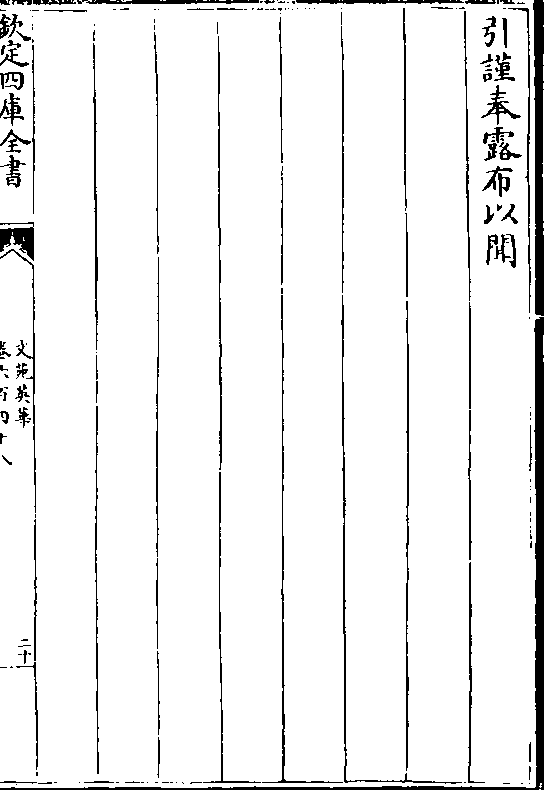 引謹奉露布以聞
欽定四庫全書
文苑英華
卷六百四十八
二十